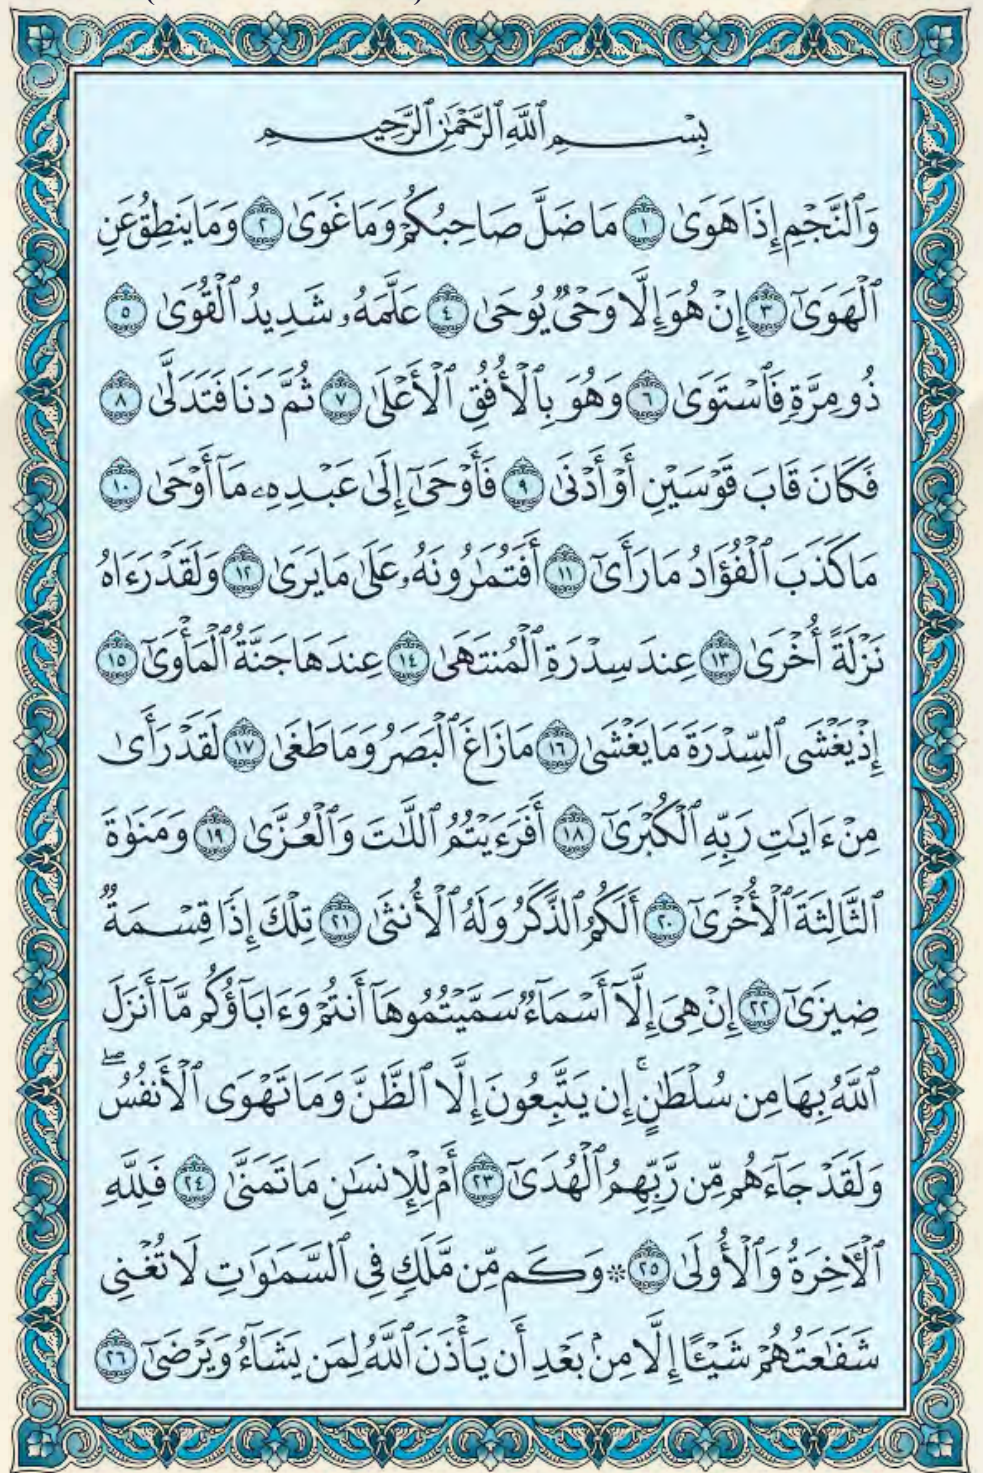 بِسْمِ ٱللَّهِ ٱلرَّحْمَٰنِ ٱلرَّحِيمِ
وَٱلنَّجْمِ إِذَا هَوَىٰ ١ مَا ضَلَّ صَاحِبُكُمْ وَمَا غَوَىٰ ٢ وَمَا يَنطِقُ عَنِ
ٱلْهَوَىٰٓ ٣ إِنْ هُوَ إِلَّا وَحْىٌ يُوحَىٰ ٤ عَلَّمَهُۥ شَدِيدُ ٱلْقُوَىٰ ٥
ذُو مِرَّةٍ فَٱسْتَوَىٰ ٦ وَهُوَ بِٱلْأُفُقِ ٱلْأَعْلَىٰ ٧ ثُمَّ دَنَا فَتَدَلَّىٰ ٨
فَكَانَ قَابَ قَوْسَيْنِ أَوْ أَدْنَىٰ ٩ فَأَوْحَىٰٓ إِلَىٰ عَبْدِهِۦ مَآ أَوْحَىٰ ١٠
مَا كَذَبَ ٱلْفُؤَادُ مَا رَأَىٰٓ ١١ أَفَتُمَٰرُونَهُۥ عَلَىٰ مَا يَرَىٰ ١٢ وَلَقَدْ رَءَاهُ
نَزْلَةً أُخْرَىٰ ١٣ عِندَ سِدْرَةِ ٱلْمُنتَهَىٰ ١٤ عِندَهَا جَنَّةُ ٱلْمَأْوَىٰٓ ١٥
إِذْ يَغْشَى ٱلسِّدْرَةَ مَا يَغْشَىٰ ١٦ مَا زَاغَ ٱلْبَصَرُ وَمَا طَغَىٰ ١٧ لَقَدْ رَأَىٰ
مِنْ ءَايَٰتِ رَبِّهِ ٱلْكُبْرَىٰٓ ١٨ أَفَرَءَيْتُمُ ٱللَّٰتَ وَٱلْعُزَّىٰ ١٩ وَمَنَوٰةَ
ٱلثَّالِثَةَ ٱلْأُخْرَىٰٓ ٢٠ أَلَكُمُ ٱلذَّكَرُ وَلَهُ ٱلْأُنثَىٰ ٢١ تِلْكَ إِذًا قِسْمَةٌ
ضِيزَىٰٓ ٢٢ إِنْ هِىَ إِلَّآ أَسْمَآءٌ سَمَّيْتُمُوهَآ أَنتُمْ وَءَابَآؤُكُم مَّآ أَنزَلَ
ٱللَّهُ بِهَا مِن سُلْطَٰنٍ ۚ إِن يَتَّبِعُونَ إِلَّا ٱلظَّنَّ وَمَا تَهْوَى ٱلْأَنفُسُ ۖ
وَلَقَدْ جَآءَهُم مِّن رَّبِّهِمُ ٱلْهُدَىٰٓ ٢٣ أَمْ لِلْإِنسَٰنِ مَا تَمَنَّىٰ ٢٤ فَلِلَّهِ
ٱلْءَاخِرَةُ وَٱلْأُولَىٰ ٢٥ * وَكَم مِّن مَّلَكٍ فِى ٱلسَّمَٰوَٰتِ لَا تُغْنِى
شَفَٰعَتُهُمْ شَيْـًٔا إِلَّا مِنۢ بَعْدِ أَن يَأْذَنَ ٱللَّهُ لِمَن يَشَآءُ وَيَرْضَىٰٓ ٢٦